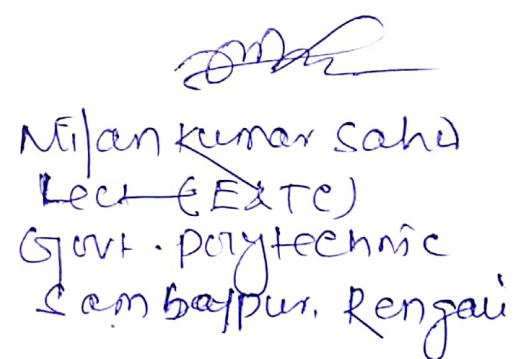 Milan kumar Sahu
Lect (E&TC)
Govt. polytechnic
Sambalpur, Rengali